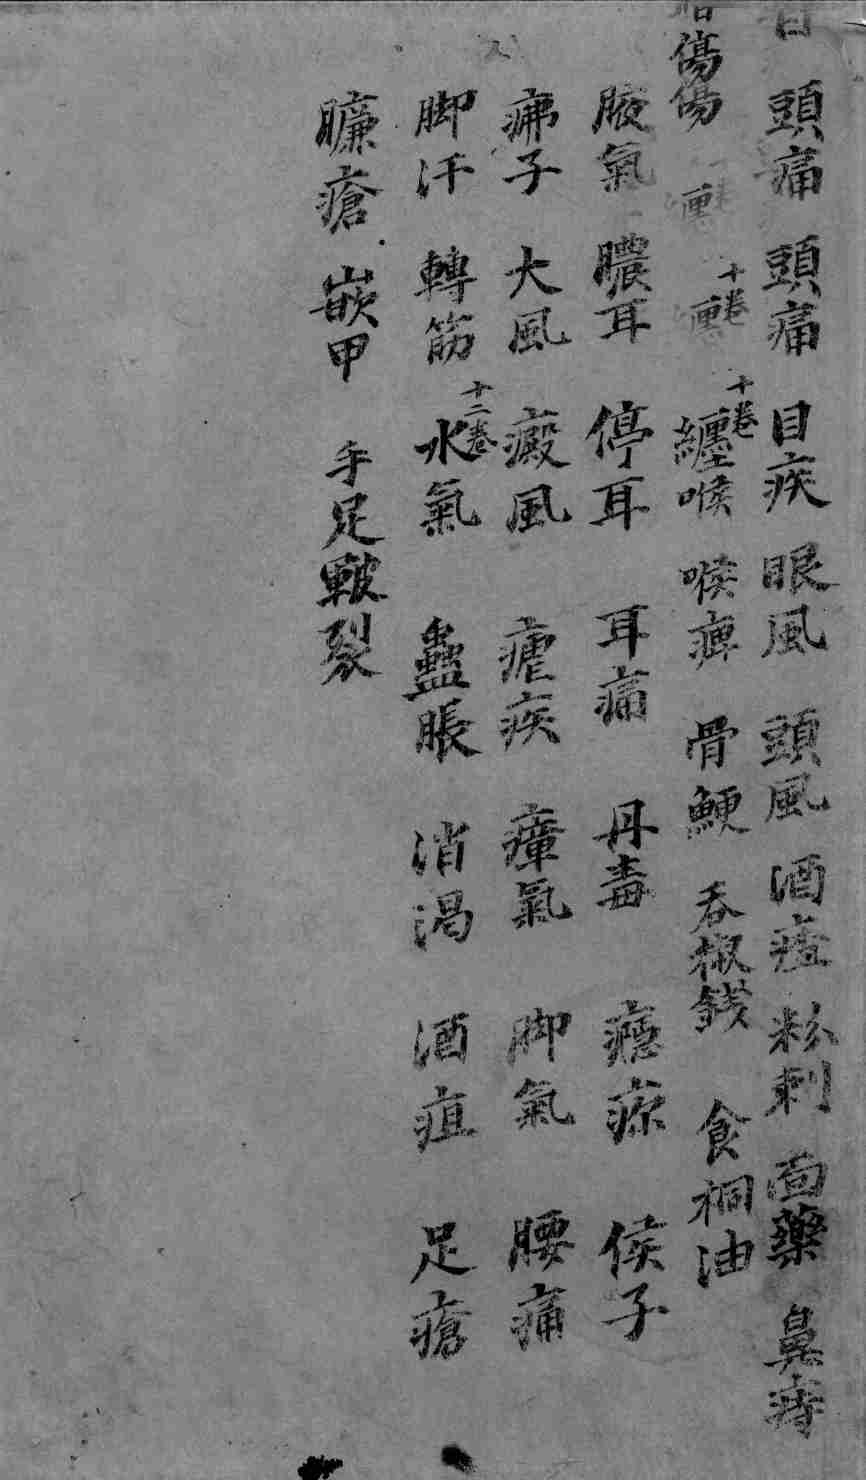 頭痛 頭痛 目疾 眼風 頭風 酒𤷍 粉刺 面藥 鼻痔
傷傷 十卷 十卷 纏喉 喉痺 骨鯁 吞椒錢 食桐油
腋氣 膿耳 停耳 耳痛 丹毒 癮疹 侯子
疿子 大風 癜風 瘧疾 瘴氣 脚氣 腰痛
脚汗 轉筋 十二卷 水氣 蠱脹 消渴 酒疸 足瘡
臁瘡 嵌甲 手足皸裂